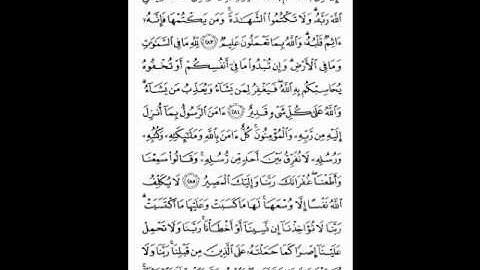 اللَّهَ رَبَّهُ ۗ وَلَا تَكْتُمُوا الشَّهَادَةَ ۚ وَمَن يَكْتُمْهَا فَإِنَّهُ
ءَاثِمٌ قَلْبُهُ ۗ وَاللَّهُ بِمَا تَعْمَلُونَ عَلِيمٌ ﴿٢٨٣﴾ لِلَّهِ مَا فِي السَّمَاوَاتِ
وَمَا فِي الْأَرْضِ ۗ وَإِن تُبْدُوا مَا فِي أَنفُسِكُمْ أَوْ تُخْفُوهُ
يُحَاسِبْكُم بِهِ اللَّهُ ۖ فَيَغْفِرُ لِمَن يَشَاءُ وَيُعَذِّبُ مَن يَشَاءُ ۗ
وَاللَّهُ عَلَىٰ كُلِّ شَيْءٍ قَدِيرٌ ﴿٢٨٤﴾ ءَامَنَ الرَّسُولُ بِمَا أُنزِلَ
إِلَيْهِ مِن رَّبِّهِ وَالْمُؤْمِنُونَ ۚ كُلٌّ ءَامَنَ بِاللَّهِ وَمَلَائِكَتِهِ وَكُتُبِهِ
وَرُسُلِهِ لَا نُفَرِّقُ بَيْنَ أَحَدٍ مِّن رُّسُلِهِ ۚ وَقَالُوا سَمِعْنَا
وَأَطَعْنَا ۖ غُفْرَانَكَ رَبَّنَا وَإِلَيْكَ الْمَصِيرُ ﴿٢٨٥﴾ لَا يُكَلِّفُ
اللَّهُ نَفْسًا إِلَّا وُسْعَهَا ۚ لَهَا مَا كَسَبَتْ وَعَلَيْهَا مَا اكْتَسَبَتْ ۗ
رَبَّنَا لَا تُؤَاخِذْنَا إِن نَّسِينَا أَوْ أَخْطَأْنَا ۚ رَبَّنَا وَلَا تَحْمِلْ
عَلَيْنَا إِصْرًا كَمَا حَمَلْتَهُ عَلَى الَّذِينَ مِن قَبْلِنَا ۚ رَبَّنَا وَلَا